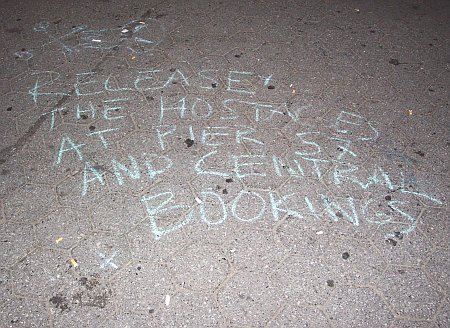 RELEASE
THE HOSTAGES
AT PIER 57
AND CENTRAL
BOOKINGS